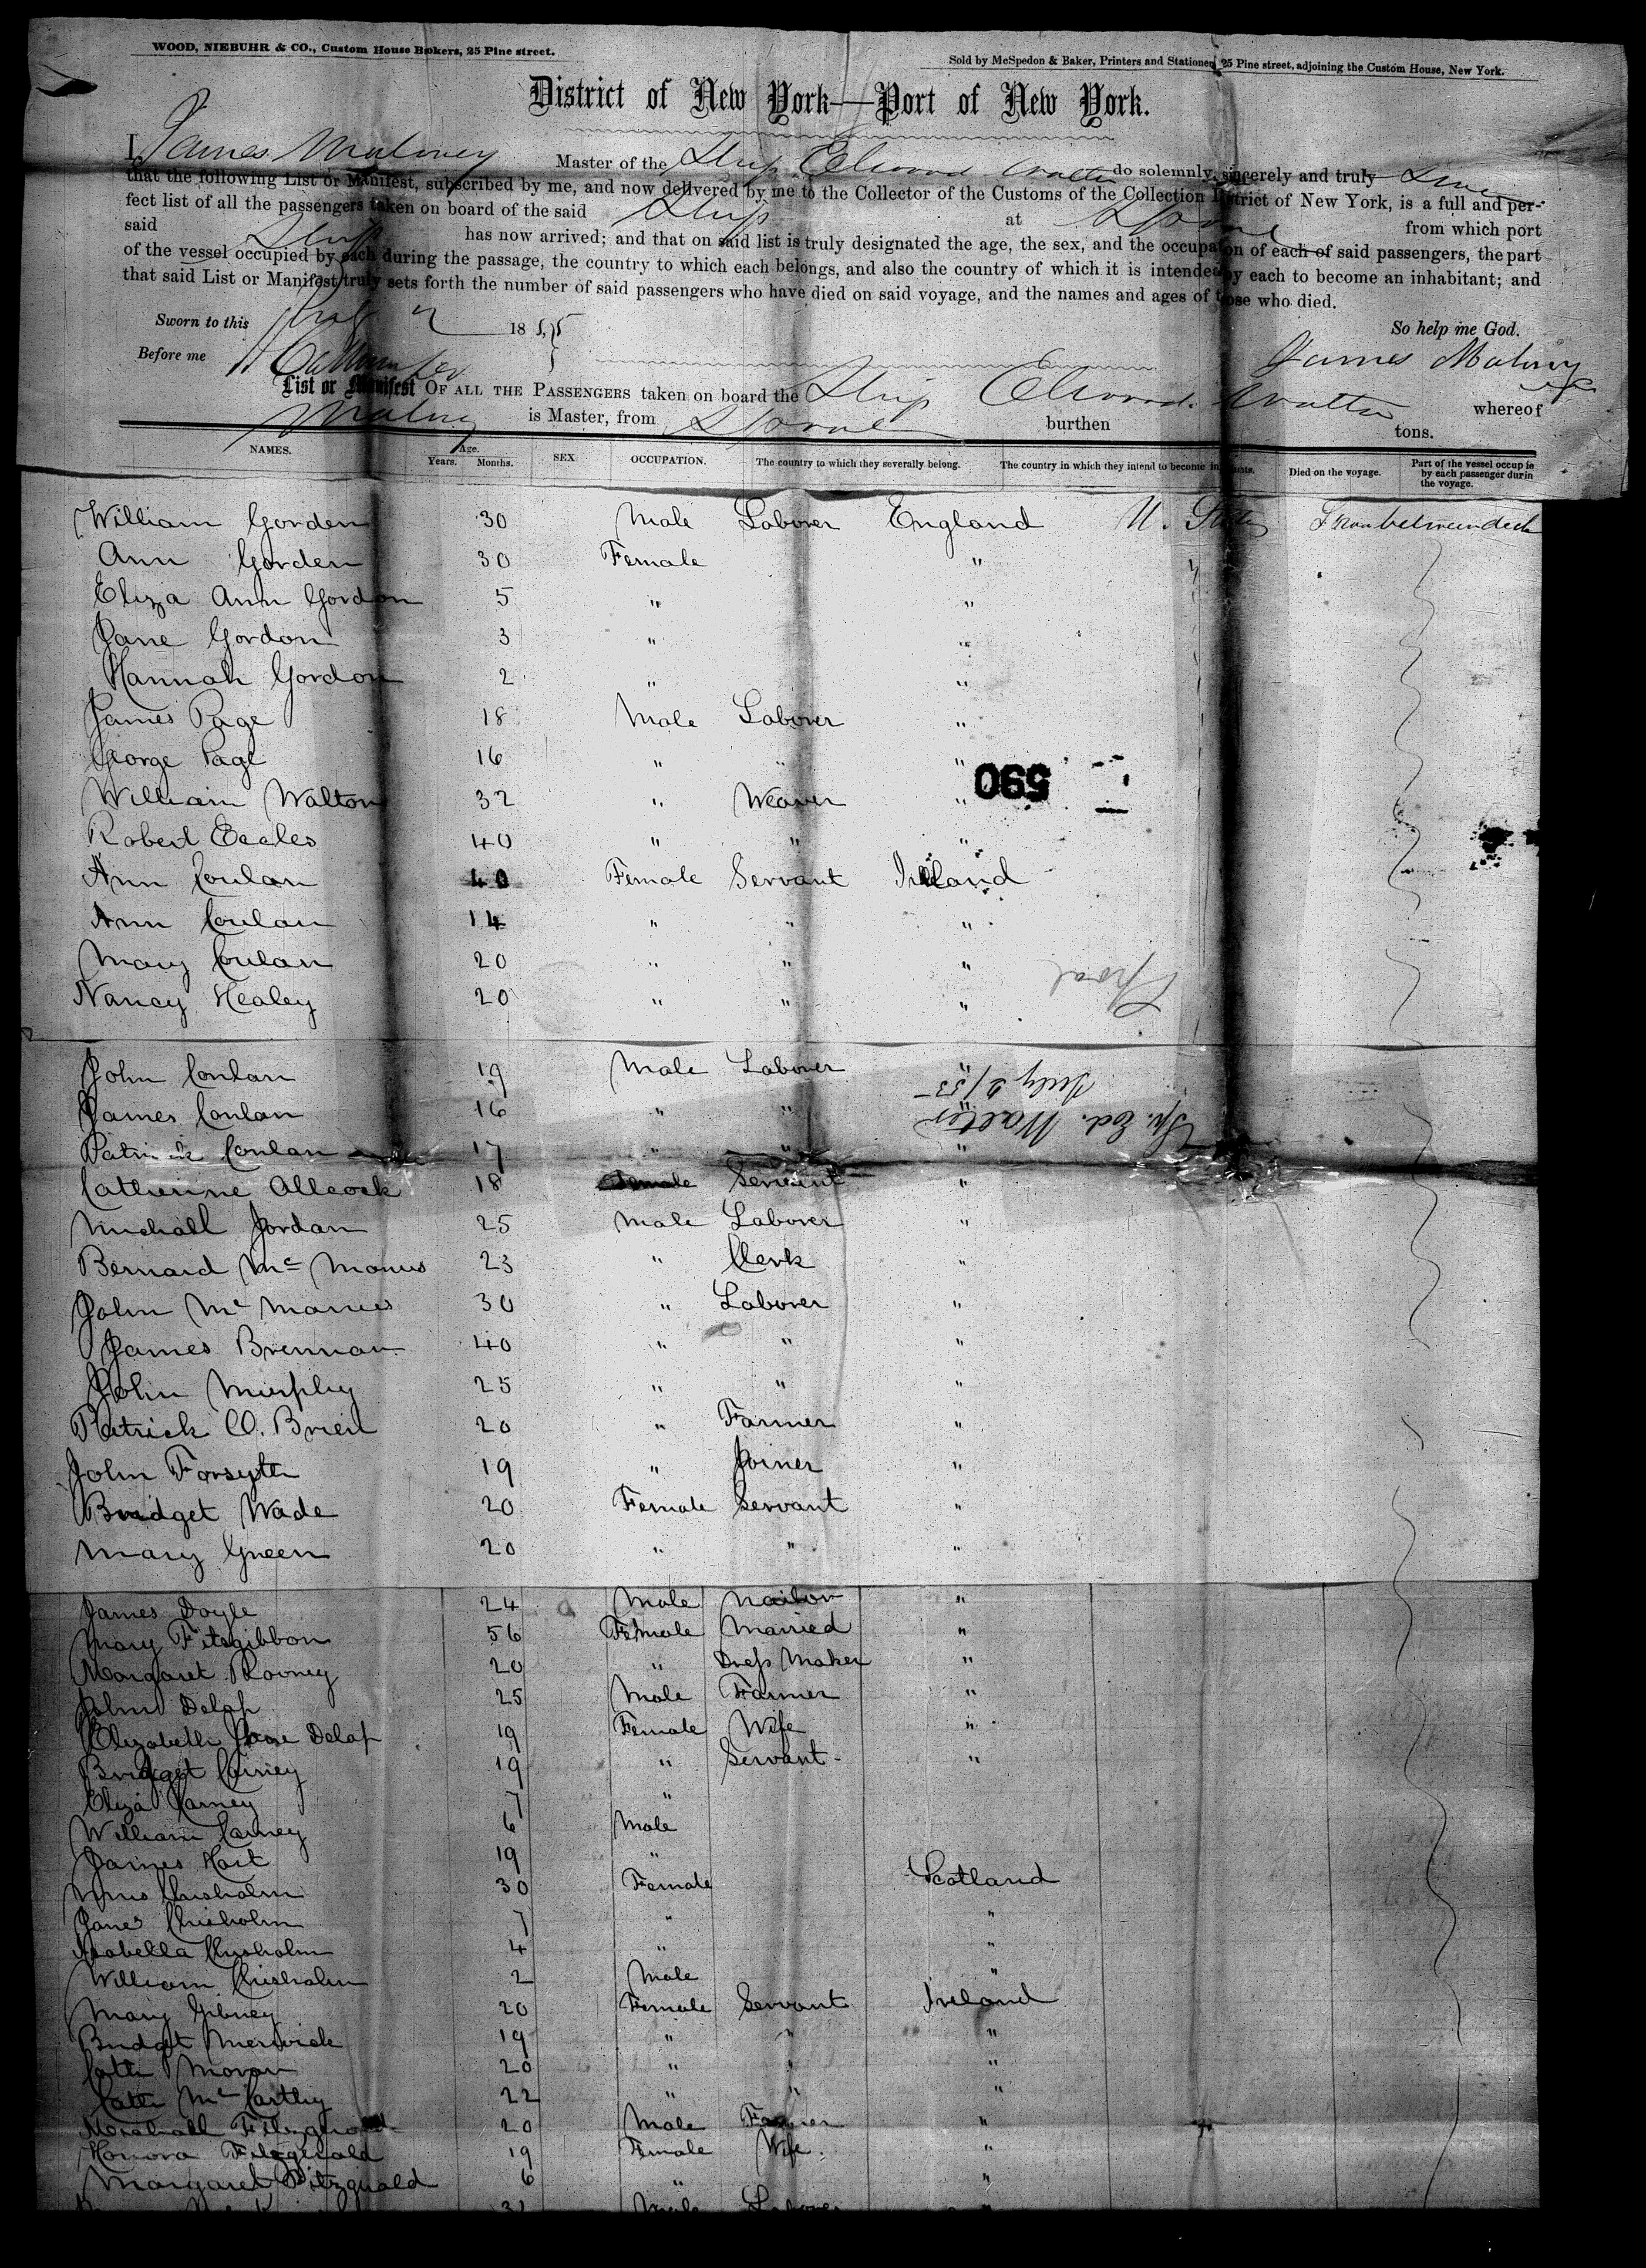 WOOD, NIEBUHR & CO., Custom House Brokers, 25 Pine street.
Sold by McSpedon & Baker, Printers and Stationers, 25 Pine street, adjoining the Custom House, New York.
District of New York—Port of New York.
I, James Maloney Master of the Ship Elwood Walter do solemnly, sincerely and truly swear
that the following List or Manifest, subscribed by me, and now delivered by me to the Collector of the Customs of the Collection District of New York, is a full and per-
fect list of all the passengers taken on board of the said Ship at L'pool from which port
said Ship has now arrived; and that on said list is truly designated the age, the sex, and the occupation of each of said passengers, the part
of the vessel occupied by each during the passage, the country to which each belongs, and also the country of which it is intended by each to become an inhabitant; and
that said List or Manifest truly sets forth the number of said passengers who have died on said voyage, and the names and ages of those who died.
Sworn to this July 2 1855 So help me God.
Before me James Maloney
List or Manifest OF ALL THE PASSENGERS taken on board the Ship Elwood Walter whereof
Maloney is Master, from L'pool burthen tons.
NAMES. Age. Years. Months. SEX OCCUPATION. The country to which they severally belong. The country in which they intend to become inhabitants. Died on the voyage. Part of the vessel occupie by each passenger durin the voyage.
William Gorden 30 Male Laborer England U. States
Ann Gorden 30 Female " "
Eliza Ann Gordon 5 " "
Jane Gordon 3 " "
Hannah Gordon 2 " "
James Page 18 Male Laborer "
George Page 16 " " "
590
William Walton 32 " Weaver "
Robert Eccles 40 " " "
Ann Conlan 40 Female Servant Ireland
Ann Conlan 14 " " "
Mary Conlan 20 " " "
L'pool
Nancy Healey 20 " " "
John Conlan 19 Male Laborer "
July 2/55
James Conlan 16 " " "
Sp. Ed. Walter
Patrick Conlan 17 " " "
Catherine Allcock 18 Female Servant "
Michall Jordan 25 Male Laborer "
Bernard Mc Manus 23 " Clerk "
John Mc Manus 30 " Laborer "
James Brennan 40 " " "
John Murphy 25 " " "
Patrick O. Brien 20 " Farmer "
John Forsyth 19 " Joiner "
Bridget Wade 20 Female Servant "
Mary Green 20 " " "
James Doyle 24 Male Nailor "
Mary Fitzgibbon 56 Female Married "
Margaret Rooney 20 " Dress Maker "
John Delap 25 Male Farmer "
Elizabeth Jane Delap 19 Female Wife "
Bridget Carney 19 " Servant "
Eliza Carney 7 "
William Carney 6 Male
James Hart 19 "
Mrs Chisholm 30 Female Scotland
Jane Chisholm 7 " "
Isabella Chisholm 4 " "
William Chisholm 2 Male "
Mary Gibney 20 Female Servant Ireland
Bridget 19 " " "
Cath Moran 20 " " "
Cath Mc Carthy 22 " " "
Michall Fitzgerald 20 Male Farmer "
Honora Fitzgerald 19 Female Wife "
Margaret Fitzgerald 6 " "
31 Male Laborer "